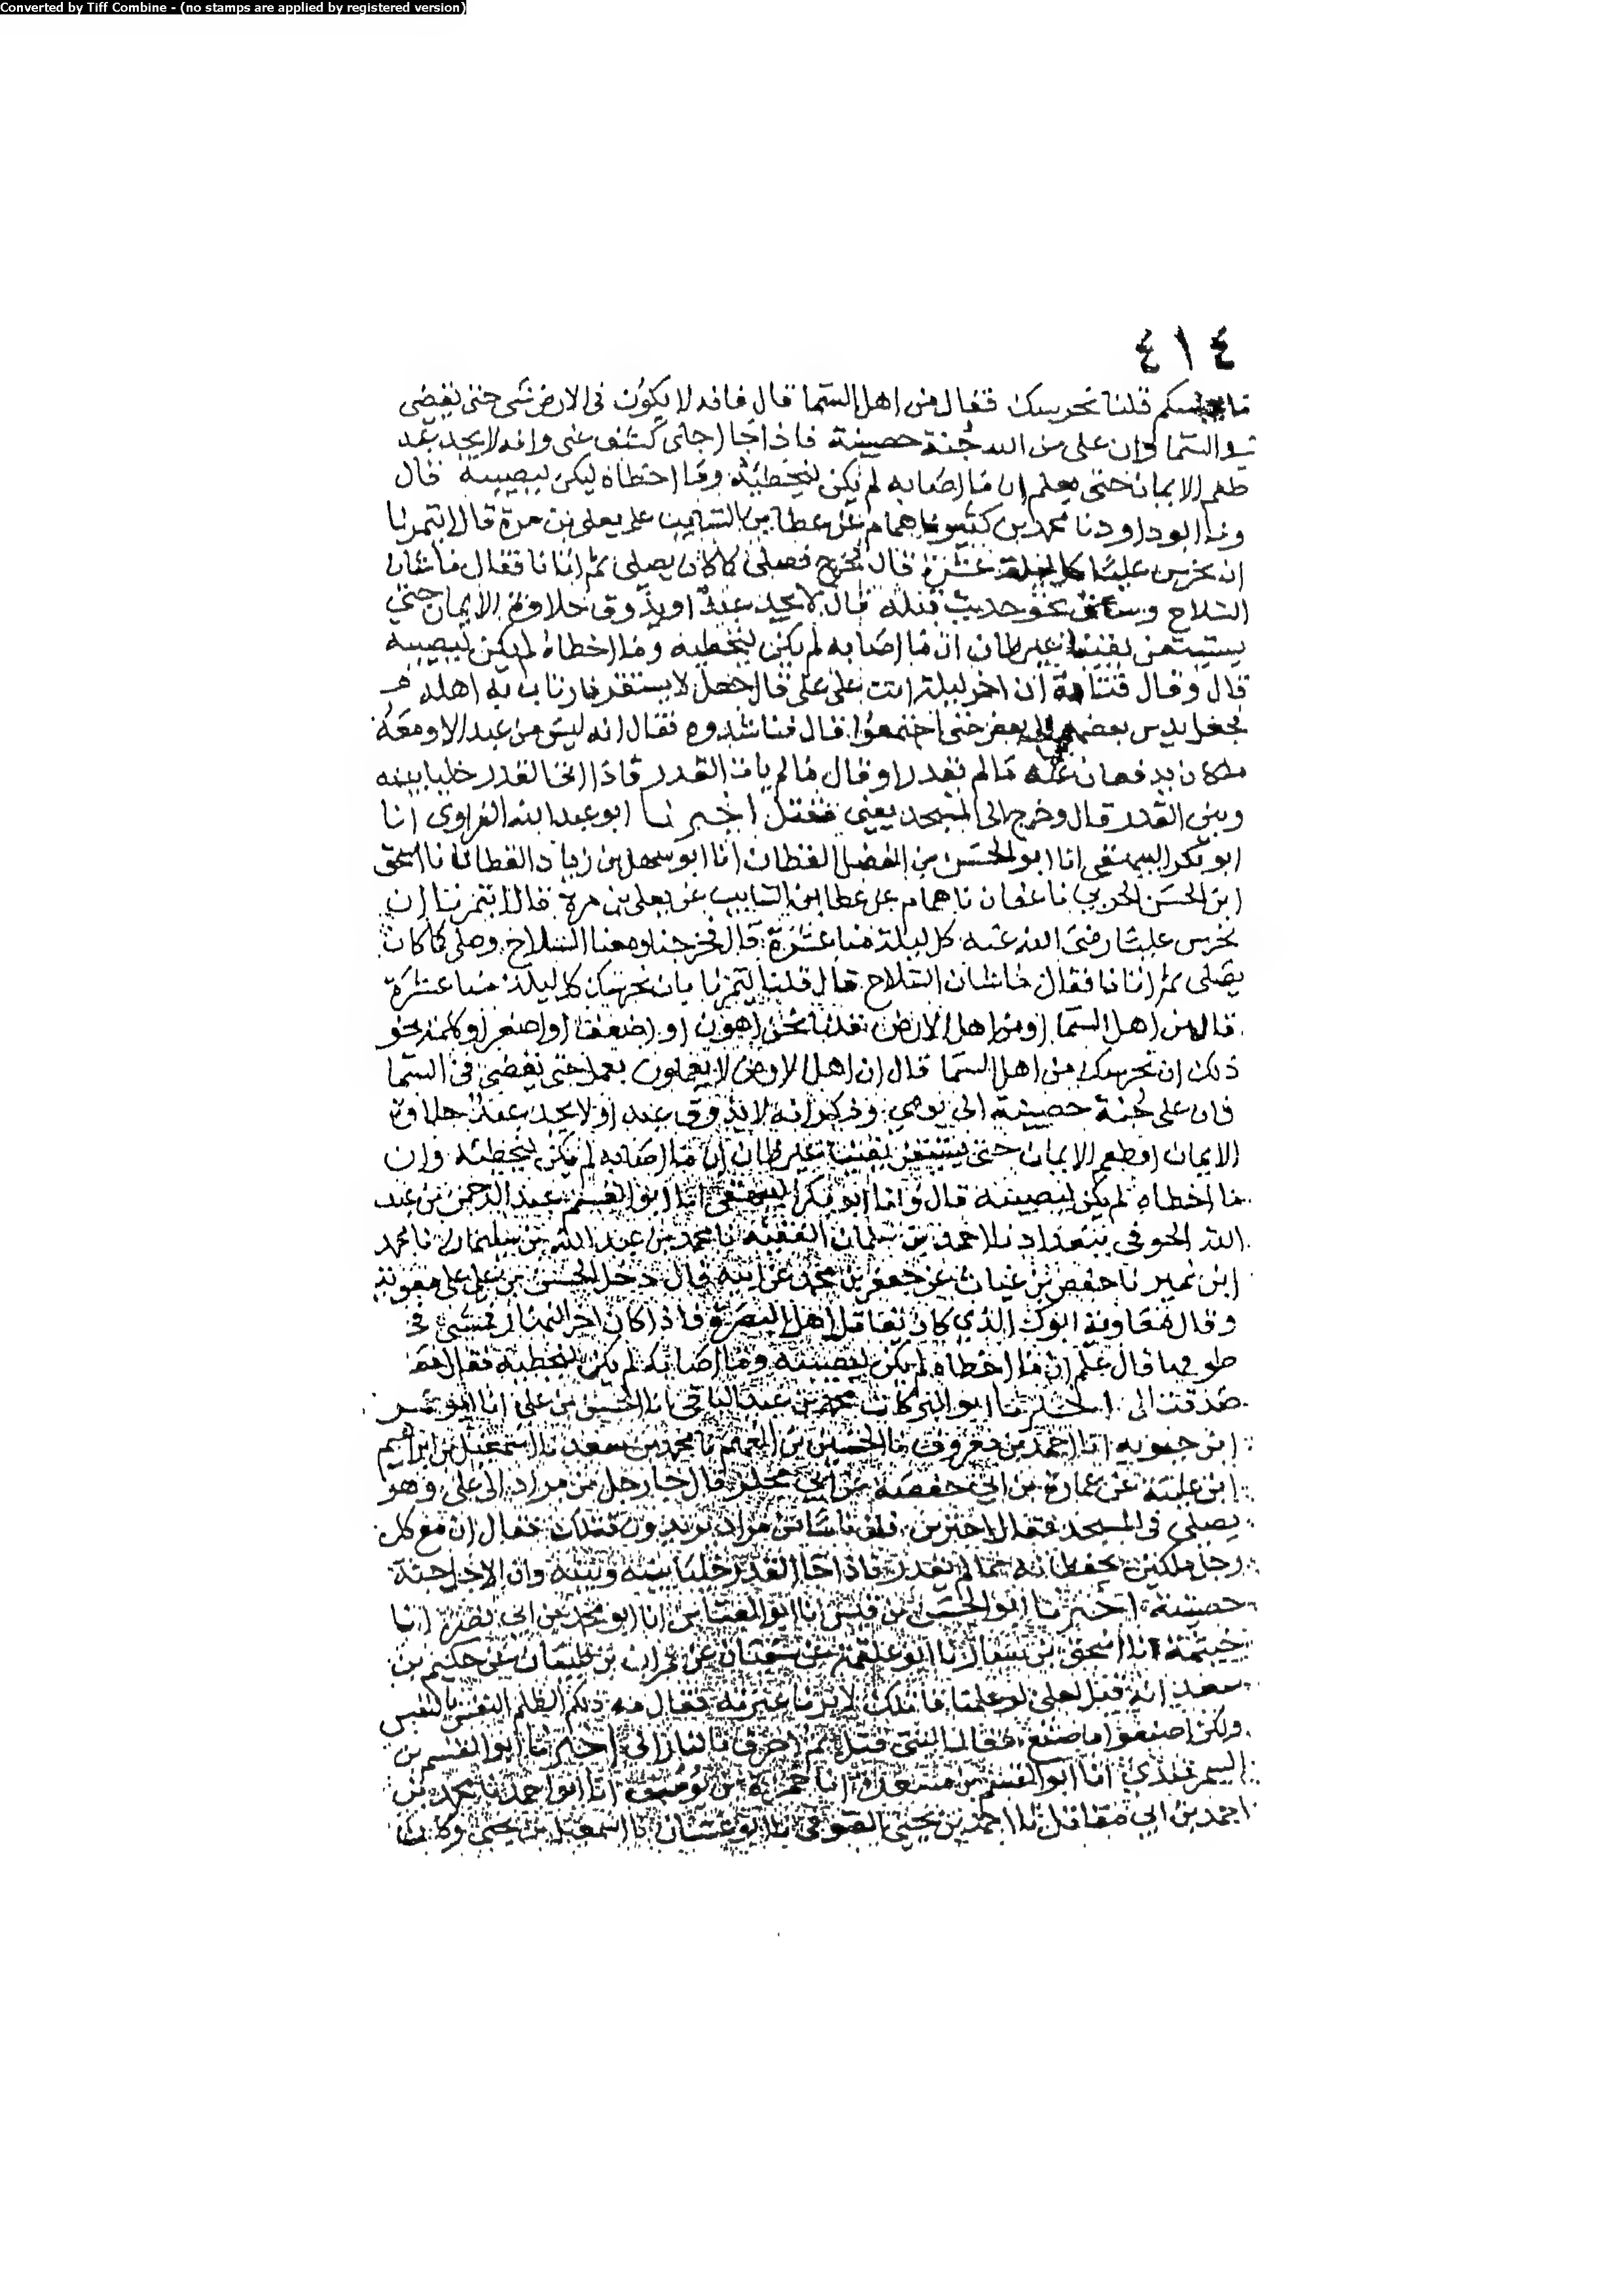 Converted by Tiff Combine - (no stamps are applied by registered version)
٤١٤
ما يجلسكم قلنا نحرسك فقال من اهل السما قال فانه لا يكون فى الارض شى حتى يقضى
فى السما وان على من الله جُنة حصينة فاذا جا اجلى كشف عنى وانه لا يجد عبد
طعم الايمان حتى يعلم ان ما اصابه لم يكن ليخطئه وما اخطاه لم يكن ليصيبه قال
ونا ابو داود نا محمد بن كثير نا همام عن عطا بن السايب عن يعلى بن مرة قال ايتمرنا
ان نحرس عليّا كل ليلة عشرة قال فخرج فصلى كما كان يصلى ثم اتانا فقال ما شان
السلاح وساق نحو حديث قبله قال لا يجد عبد او يذوق حلاوة الايمان حتى
يستيقن يقينا غير ظان ان ما اصابه لم يكن ليخطيه وما اخطاه لم يكن ليصيبه
قال وقال قتادة ان اخر ليلة اتت على على قال جعل لا يستقر فارتاب به اهله
فجعل يدس بعضهم الى بعض حتى اجتمعوا قال فناشدوه فقال انه ليس من عبد الا ومعه
ملكان يدفعان عنه ما لم يقدر او قال ما لم يات القدر فاذا اتى القدر خليا بينه
وبين القدر قال وخرج الى المسجد يعنى فقتل اخبرنا ابو عبد الله الفراوى انا
ابو بكر البيهقى انا ابو الحسين بن الفضل القطان انا ابو سهل بن زياد القطان نا اسحق
ابن الحسن الحربي نا عفان نا همام عن عطا بن السايب عن يعلى بن مرة قال ايتمرنا ان
نحرس عليا رضى الله عنه كل ليلة منا عشرة قال فخرجنا ومعنا السلاح وصلى كما كان
يصلى ثم اتانا فقال ما شان السلاح قال قلنا ايتمرنا بان نحرسك كل ليلة منا عشرة
قال من اهل السما او من اهل الارض قلنا نحن اهون او اضعف او اصغر او كلمة نحو
ذلك ان نحرسك من اهل السما قال ان اهل الارض لا يعملون بعمل حتى يقضى فى السما
فان على جُنة حصينة الى يومى وذكر انه لا يذوق عبد او لا يجد عبد حلاوة
الايمان او طعم الايمان حتى يستيقن يقينا غير ظان ان ما اصابه لم يكن ليخطئه وان
ما اخطاه لم يكن ليصيبه قال وانا ابو بكر البيهقى انا ابو القسم عبد الرحمن بن عبد
الله الحرفى ببغداد نا احمد بن سلمان الفقيه نا محمد بن عبد الله بن سليمان نا محمد
ابن نمير نا حفص بن غياث عن جعفر بن محمد عن ابيه قال دخل الحسن بن على على معوية
وقال معاوية ابوك الذي كان يقاتل اهل البصرة فاذا كان اخر النهار يمشى فى
طرقها قال علم ان ما اخطاه لم يكن ليصيبه وما اصابه لم يكن ليخطيه فقال
صدقت اخبرنا ابو البركات عبد الباقى انا الحسن بن على انا ابو عمر
ابن حيويه انا احمد بن معروف نا الحسين بن الفهم نا محمد بن سعد نا اسمعيل بن ابراهيم
ابن علية عن عمارة بن ابى حفصة عن ابى مجلز قال جا رجل من مراد الى على وهو
يصلى فى المسجد فقال احترس فان ناسا من مراد يريدون قتلك فقال ان مع كل
رجل ملكين يحفظانه مما لم يقدر فاذا جا القدر خليا بينه وبينه وان الاجل جنة
حصينة اخبرنا ابو الحسن بن قبيس انا ابو العباس انا ابو محمد بن ابى نصر انا
خيثمة نا اسحق بن سيار نا ابو علقمة عن سفيان عن عمران بن ظبيان عن حكيم بن
سعد انه قيل لعلى لو علمنا قاتلك لابرنا عترته فقال مه ذلكم الظلم النفس بالنفس
ولكن اصنعوا ما صنع بقاتل النبى قتل ثم احرق بالنار اخبرنا ابو القسم بن
السمرقندى انا ابو القسم بن مسعدة انا حمزة بن يوسف انا ابو احمد نا محمد بن
احمد بن ابى مقاتل نا احمد بن يحيى الصوفى نا ابو غسان نا اسمعيل بن يحيى وكان